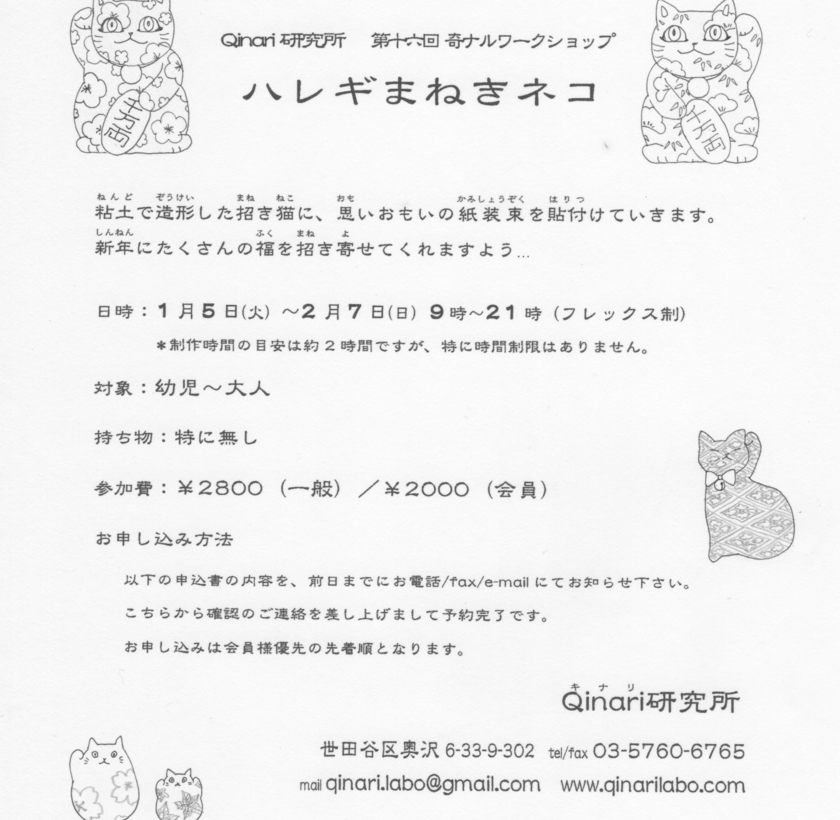 Qinari 研究所 第十六回 奇ナルワークショップ
ハレギまねきネコ
千万両
千万両
ねんど ぞうけい まね ねこ おも かみしょうぞく はりつ
粘土で造形した招き猫に、思いおもいの紙装束を貼付けていきます。
しんねん ふく まね よ
新年にたくさんの福を招き寄せてくれますよう…
日時：1月5日(火) ～2月7日(日) 9時～21時（フレックス制）
＊制作時間の目安は約2時間ですが、特に時間制限はありません。
対象：幼児～大人
持ち物：特に無し
参加費：¥2800（一般）／¥2000（会員）
お申し込み方法
以下の申込書の内容を、前日までにお電話/fax/e-mailにてお知らせ下さい。
こちらから確認のご連絡を差し上げまして予約完了です。
お申し込みは会員様優先の先着順となります。
キナリ
Qinari研究所
世田谷区奥沢 6-33-9-302 tel/fax 03-5760-6765
mail qinari.labo@gmail.com www.qinarilabo.com